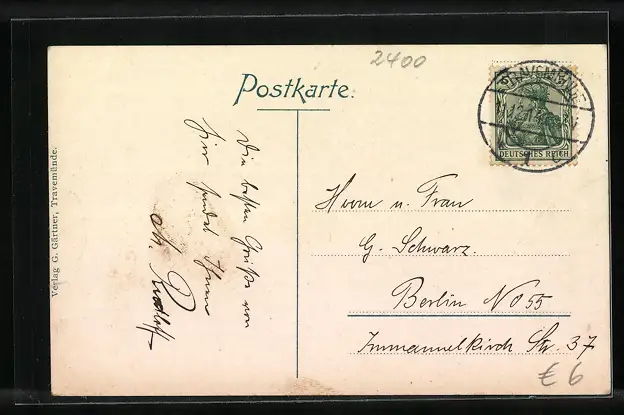 2400
Postkarte.
TRAVEMÜNDE
DEUTSCHES REICH
Die besten Grüße von
hier sendet Ihnen
Verlag G. Gärtner, Travemünde.
Herrn u. Frau
G. Schwarz.
Berlin NO 55
Immanuelkirch Str. 37
€ 6